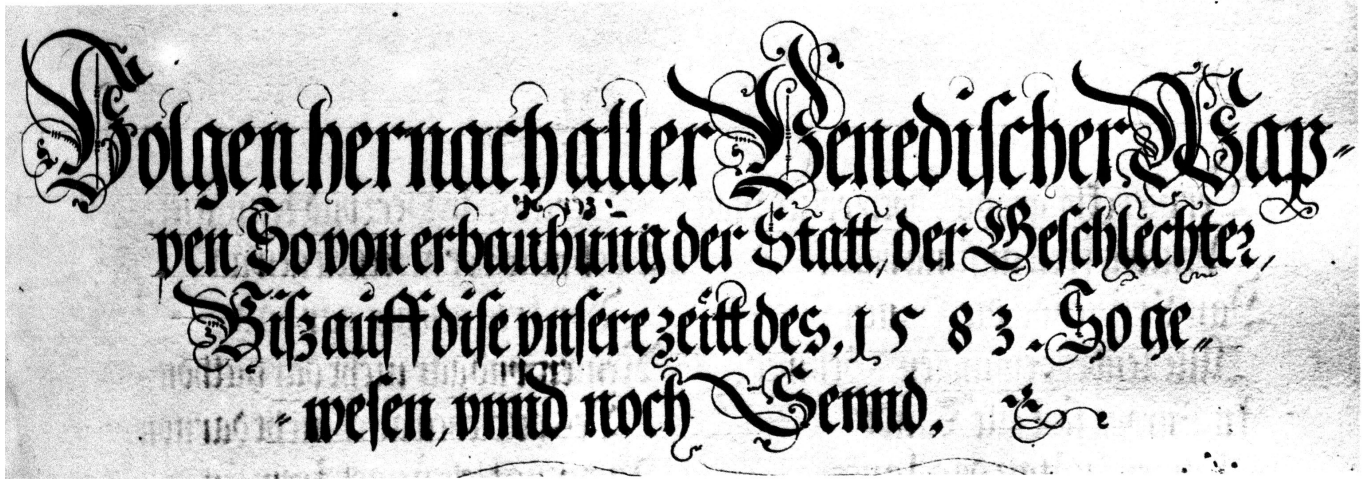 Folgen hernach aller Venedischer Wap⸗
pen, So von erbauhung der Statt, der Geschlechter,
Biß auff dise vnsere zeitt des, 1583. So ge⸗
wesen, vnnd noch Sennd.